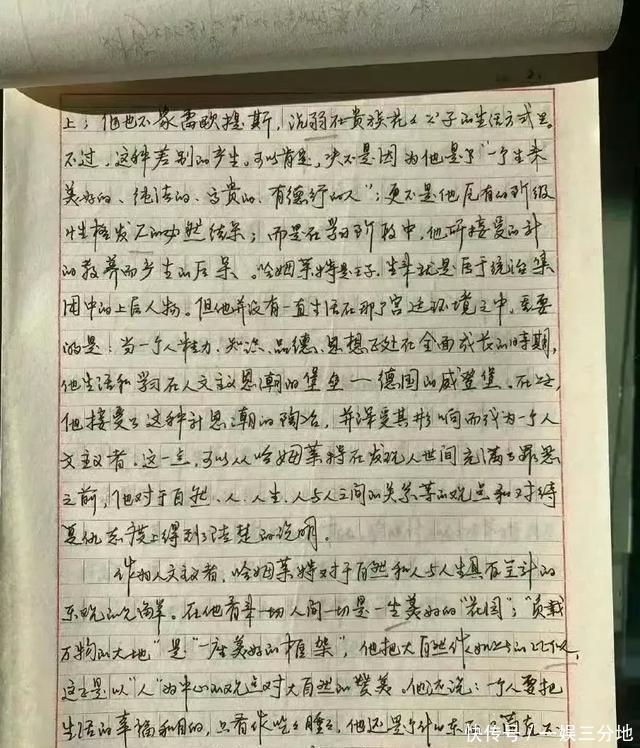 上；他也不象雷欧提斯，沉溺在贵族花花公子的生活方式里。
不过，这种差别的产生，可以肯定，决不是因为他是个"一个生来
美好的、纯洁的、高贵的、有德行的人"；更不是他固有的阶级
性格发展的必然结果；而是在学习阶段中，他所接受的
的教养而产生的后果。哈姆莱特是王子，生来就是居于统治集
团中的上层人物。但他并没有一直生活在那个宫廷环境之中，主要
的是：当一个人精力、知识、品德、思想正处在全面成长的时期，
他生活和学习在人文主义思潮的堡垒一德国的威登堡。在这里，
他接受了这种新思潮的陶冶，并深受其影响而成为一个人
文主义者。这一点，可以从哈姆莱特在发现人世间充满了罪恶
之前，他对于自然、人、人生、人与人之间的关系等的观点和对待
复仇态度上得到了清楚的说明。
作为人文主义者，哈姆莱特对于自然和人与人生具有
乐观的。在他看来一切人间一切是一座美好的"花园"；"负载
万物的大地"是"一座美好的框架"，他把大自然作如此的比
这正是以"人"为中心的观点对大自然的赞美。他还说：一个人要把
生活的幸福和目的，只看作吃吃睡睡，他还是个什么东西？
快传号/一娱三分地